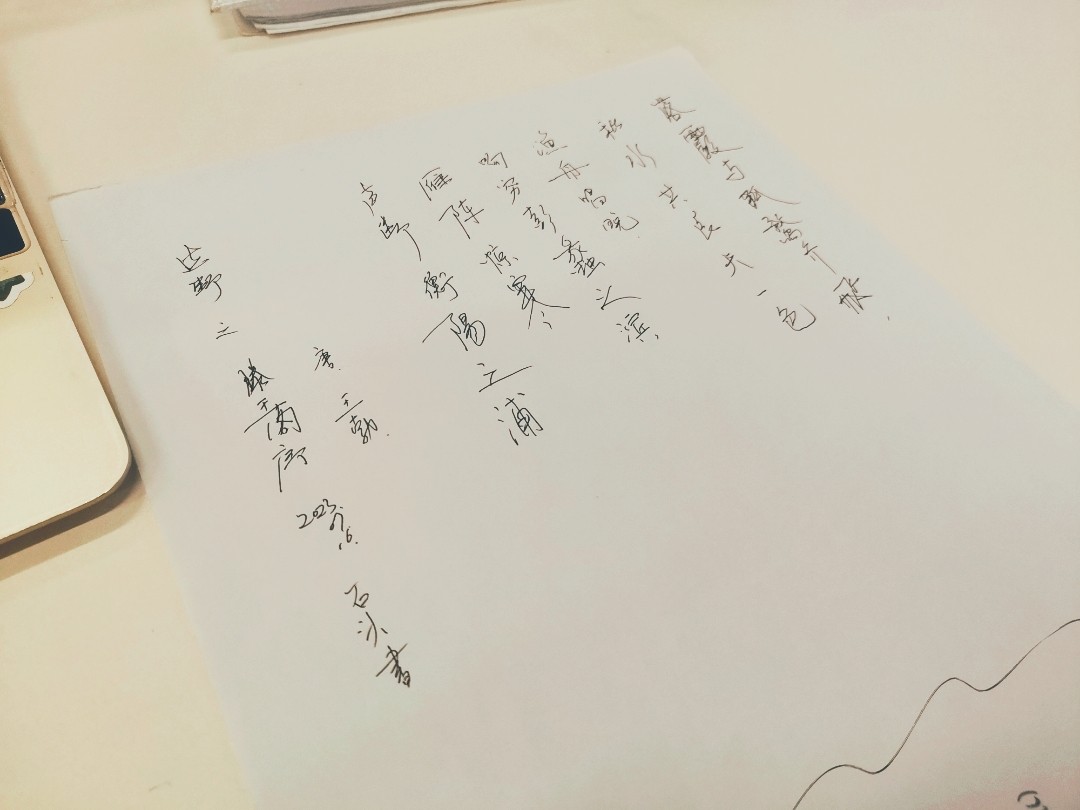 落霞与孤鹜齐飞.
秋水共长天一色
渔舟唱晚.
响穷彭蠡之滨
雁阵惊寒,
声断衡陽之浦
唐.王勃.
之滕王阁序
2023.
石头書